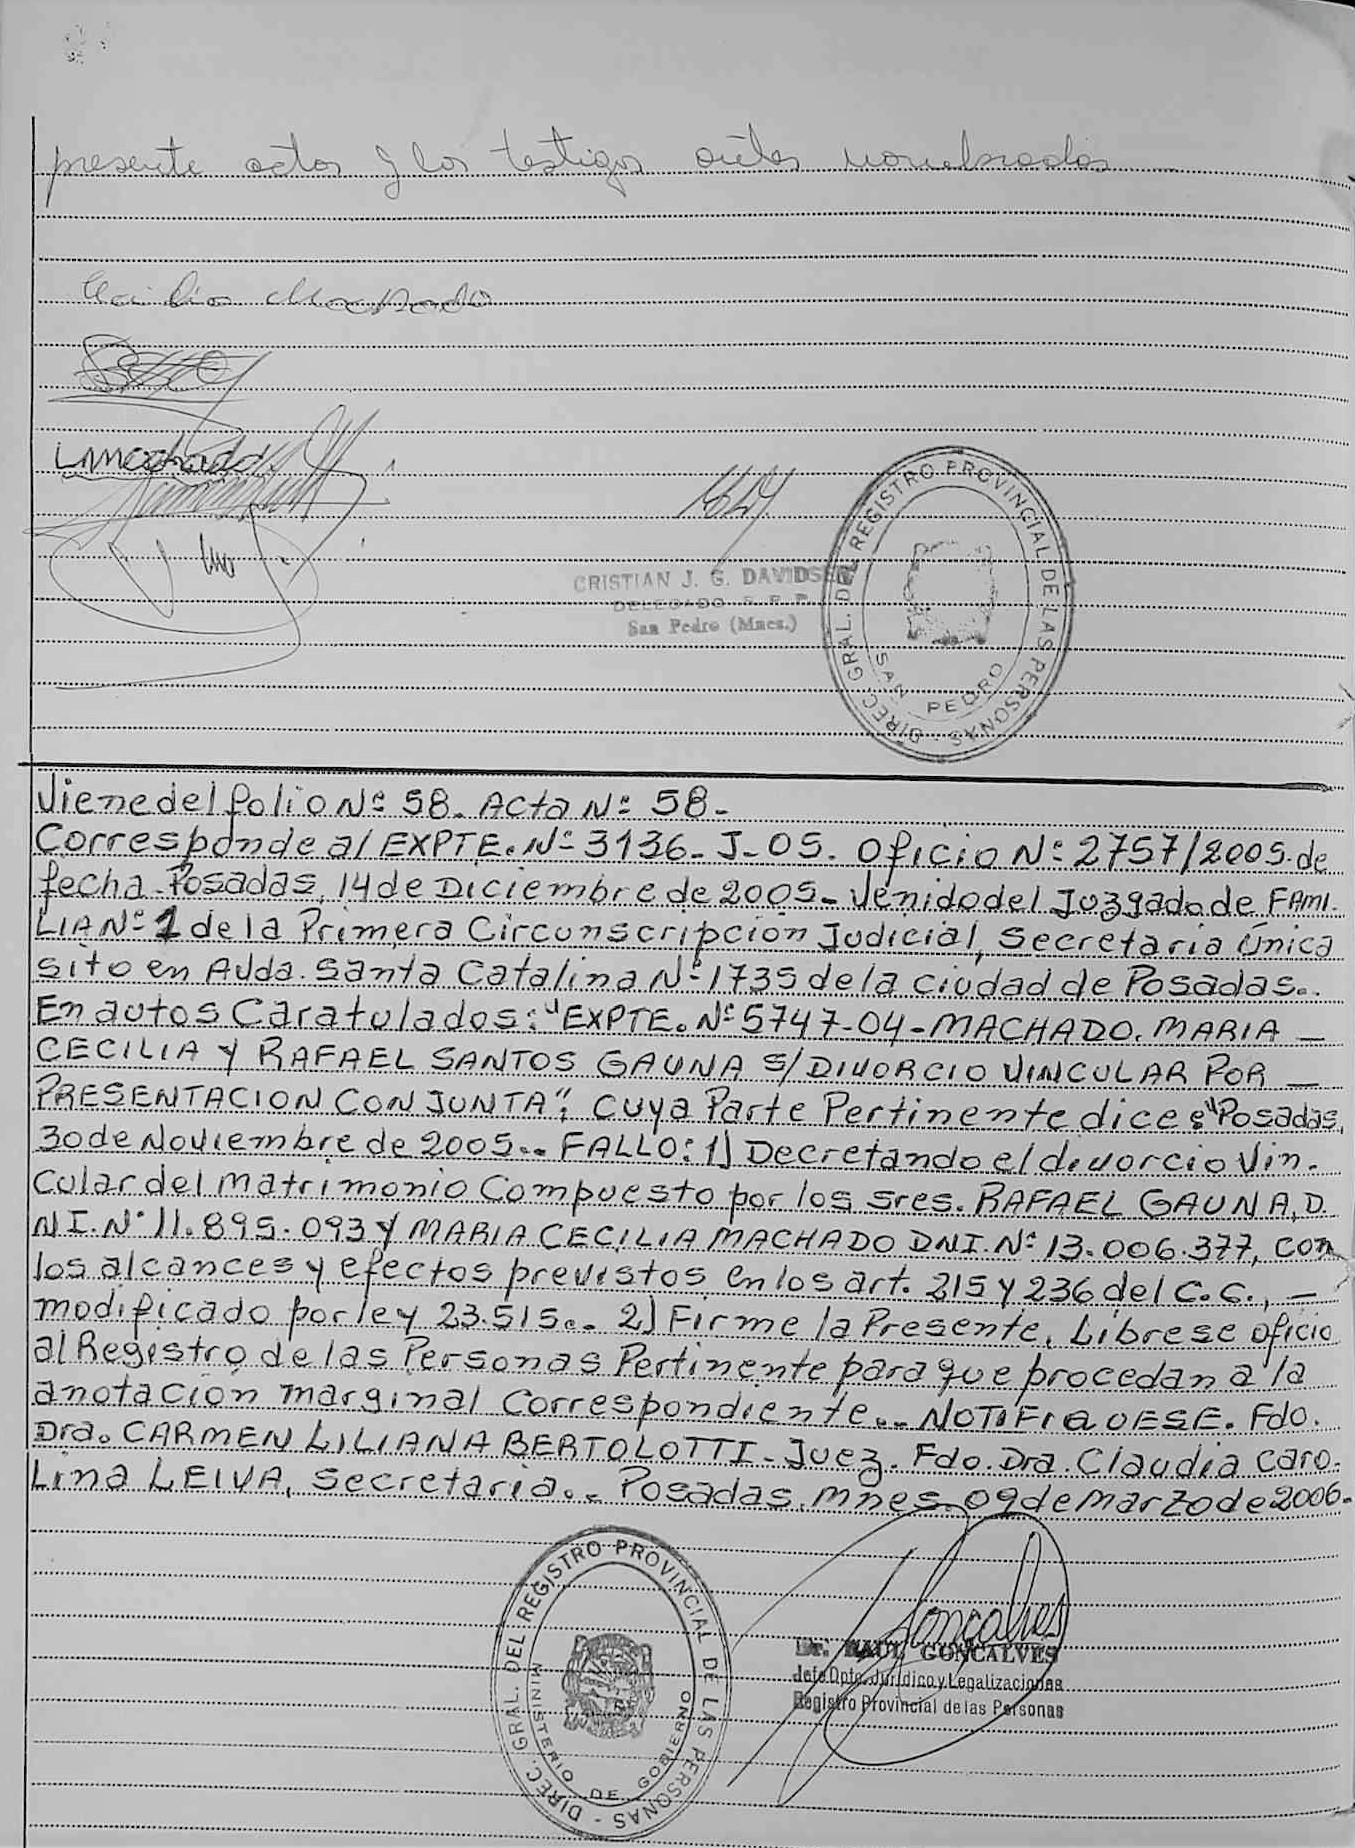 presente actos y los testigos antes nombrados
Cecilia Machado
LMachado
CRISTIAN J. G. DAVIDSE
DELEGADO S. R. P.
San Pedro (Mnes.)
DIREC. GRAL. DEL REGISTRO PROVINCIAL DE LAS PERSONAS -
SAN PEDRO
Viene del folio Nº 58. Acta Nº 58.-
Corresponde al EXPTE. Nº 3136- J-05. Oficio Nº 2757/2005. de
fecha. Posadas, 14 de Diciembre de 2005- Venido del Juzgado de FAMI.
LIA Nº 1 de la Primera Circunscripción Judicial, Secretaria Única
sito en Avda. Santa Catalina Nº 1735 de la ciudad de Posadas..
En autos Caratulados: "EXPTE. Nº 5747-04-MACHADO. MARIA —
CECILIA Y RAFAEL SANTOS GAUNA S/DIVORCIO VINCULAR POR —
PRESENTACION CONJUNTA", cuya Parte Pertinente dice: "Posadas,
30 de Noviembre de 2005.- FALLO: 1) Decretando el divorcio Vin-
cular del matrimonio compuesto por los Sres. RAFAEL GAUNA, D.
NI. Nº 11.895.093 y MARIA CECILIA MACHADO DNI. Nº 13.006.377, con
los alcances y efectos previstos en los art. 215 y 236 del C.C., —
modificado por ley 23.515.- 2) Firme la Presente, Líbrese oficio
al Registro de las Personas Pertinente para que procedan a la
anotación marginal Correspondiente.- NOTIFIQUESE. Fdo.
Dra. CARMEN LILIANA BERTOLOTTI- Juez. Fdo. Dra. Claudia Caro-
Lina LEIVA, Secretaria.- Posadas. Mnes. 09 de Marzo de 2006.
DIREC. GRAL. DEL REGISTRO PROVINCIAL DE LAS PERSONAS -
MINISTERIO DE GOBIERNO
Gonçalves
Dr. RAUL GONCALVES
Jefe Dpto. Jurídico y Legalizaciones
Registro Provincial de las Personas